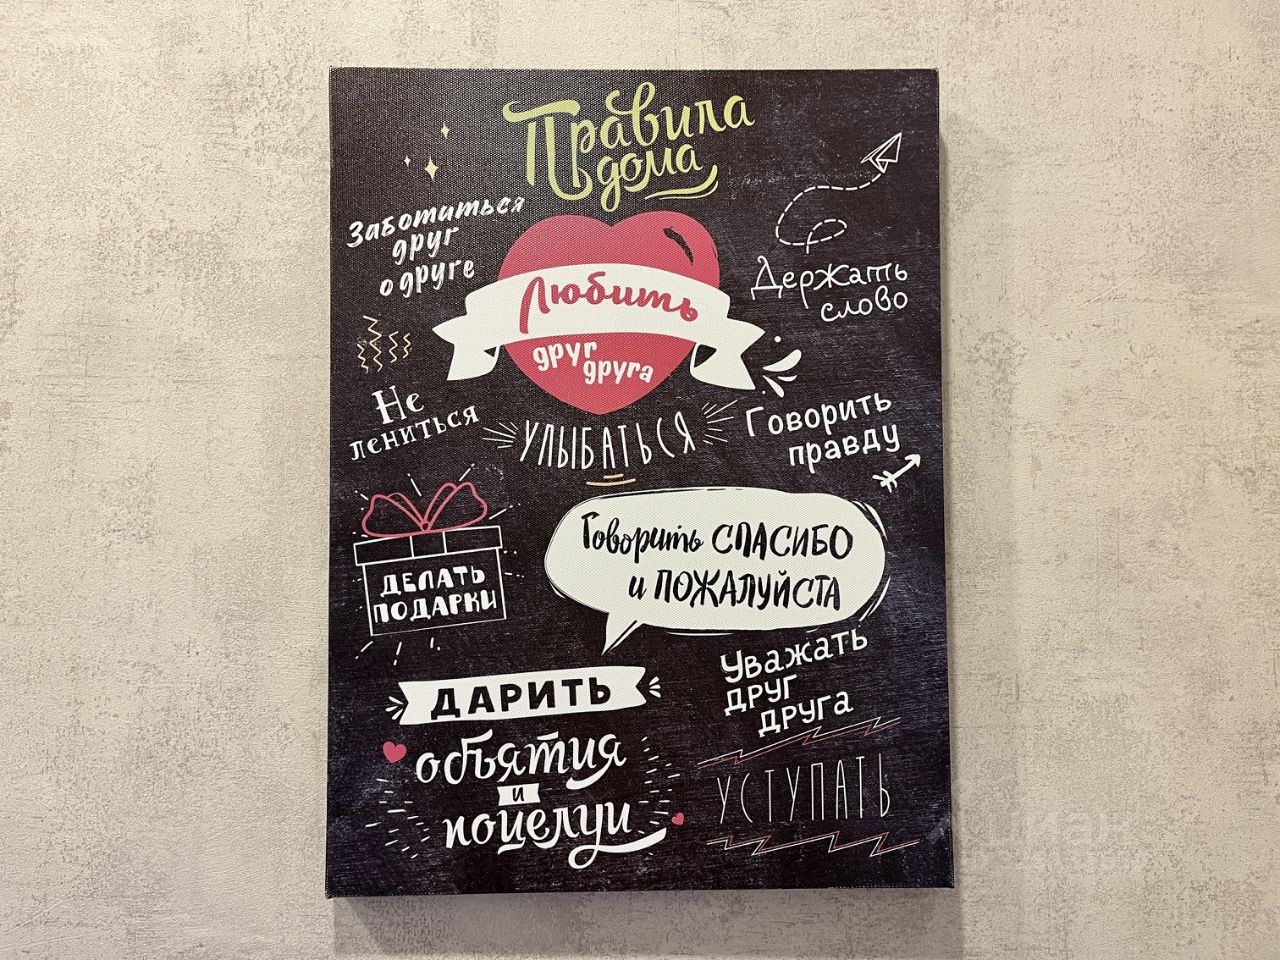 Правила
дома
Заботиться
друг
о друге
Держать
слово
Любить
друг
друга
Не
лениться
УЛЫБАТЬСЯ
Говорить
правду
ДЕЛАТЬ
ПОДАРКИ
Говорить СПАСИБО
и ПОЖАЛУЙСТА
Уважать
друг
друга
ДАРИТЬ
объятия
и
поцелуи
УСТУПАТЬ